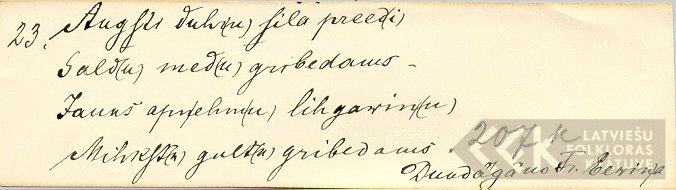 23. Augsti duh(u) sila preed(i)
Sald(u) med(u) gribedams –
Jauns apņehm(u) lihgawiņ(u)
Mihkst(u) gult(u) gribedams.
207 k
Dundagā no Fr.
LATVIEŠU
FOLKLORAS
KRĀTUVE